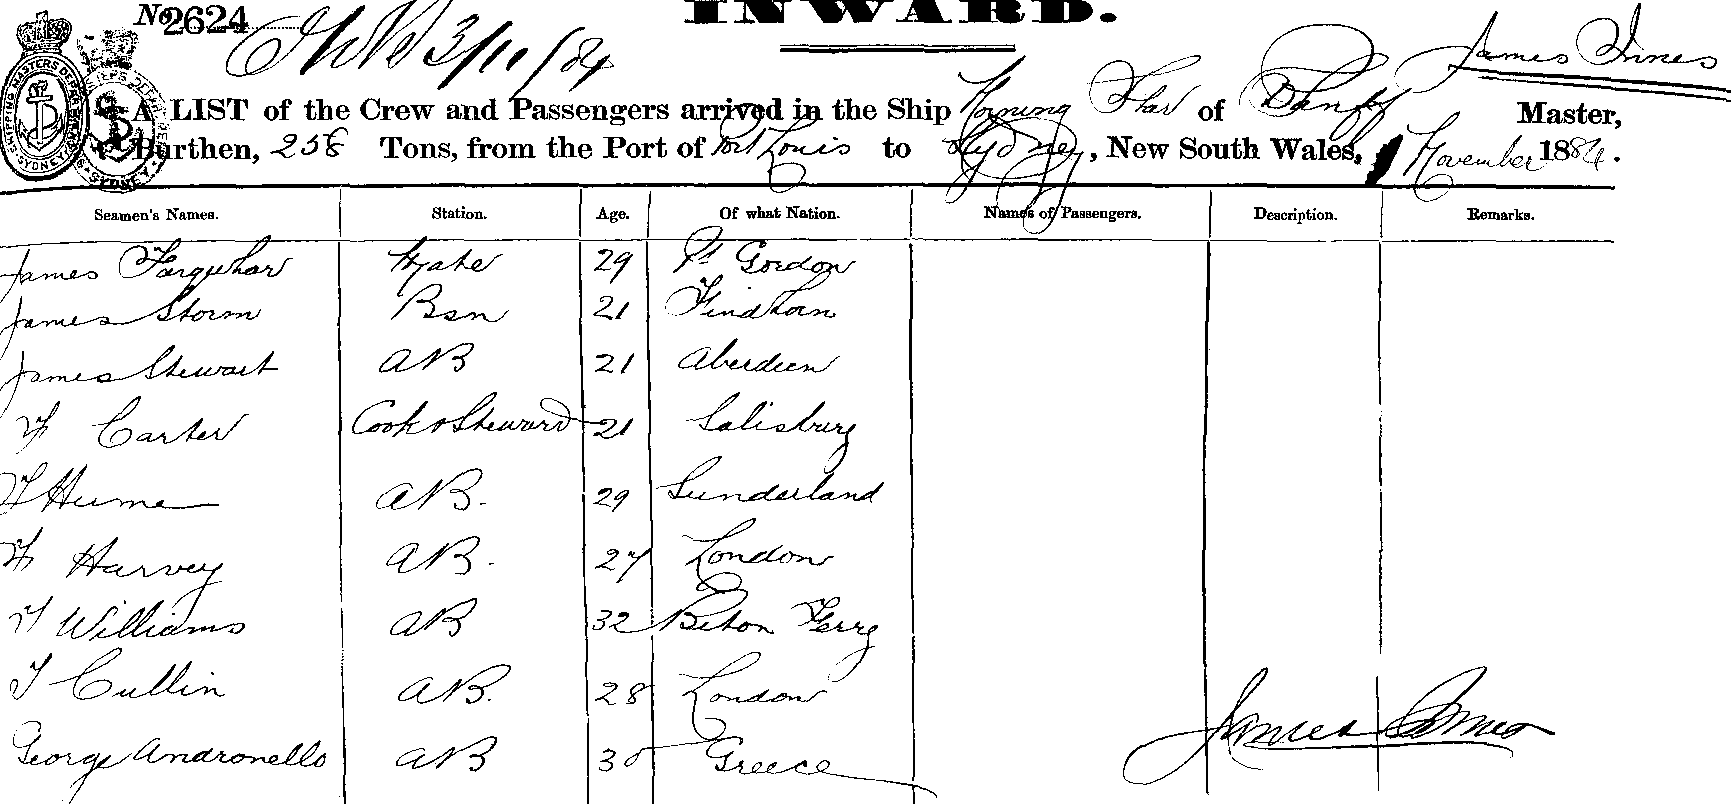 No 2624
INWARD.
3/11/84
James Innes
A LIST of the Crew and Passengers arrived in the Ship Morning Star of Banff Master,
Burthen, 258 Tons, from the Port of Port Louis to Sydney, New South Wales, 1 November 1884.
Seamen's Names. Station. Age. Of what Nation. Names of Passengers. Description. Remarks.
James Farquhar Mate 29 Pt Gordon
James Storm Bsn 21 Findhorn
James Stewart AB 21 Aberdeen
Carter Cook & Steward 21 Salisbury
Hume AB. 29 Sunderland
Harvey AB. 27 London
Williams AB 32 Briton Ferry
Cullin AB. 28 London
George Andronello AB 30 Greece
James Innes